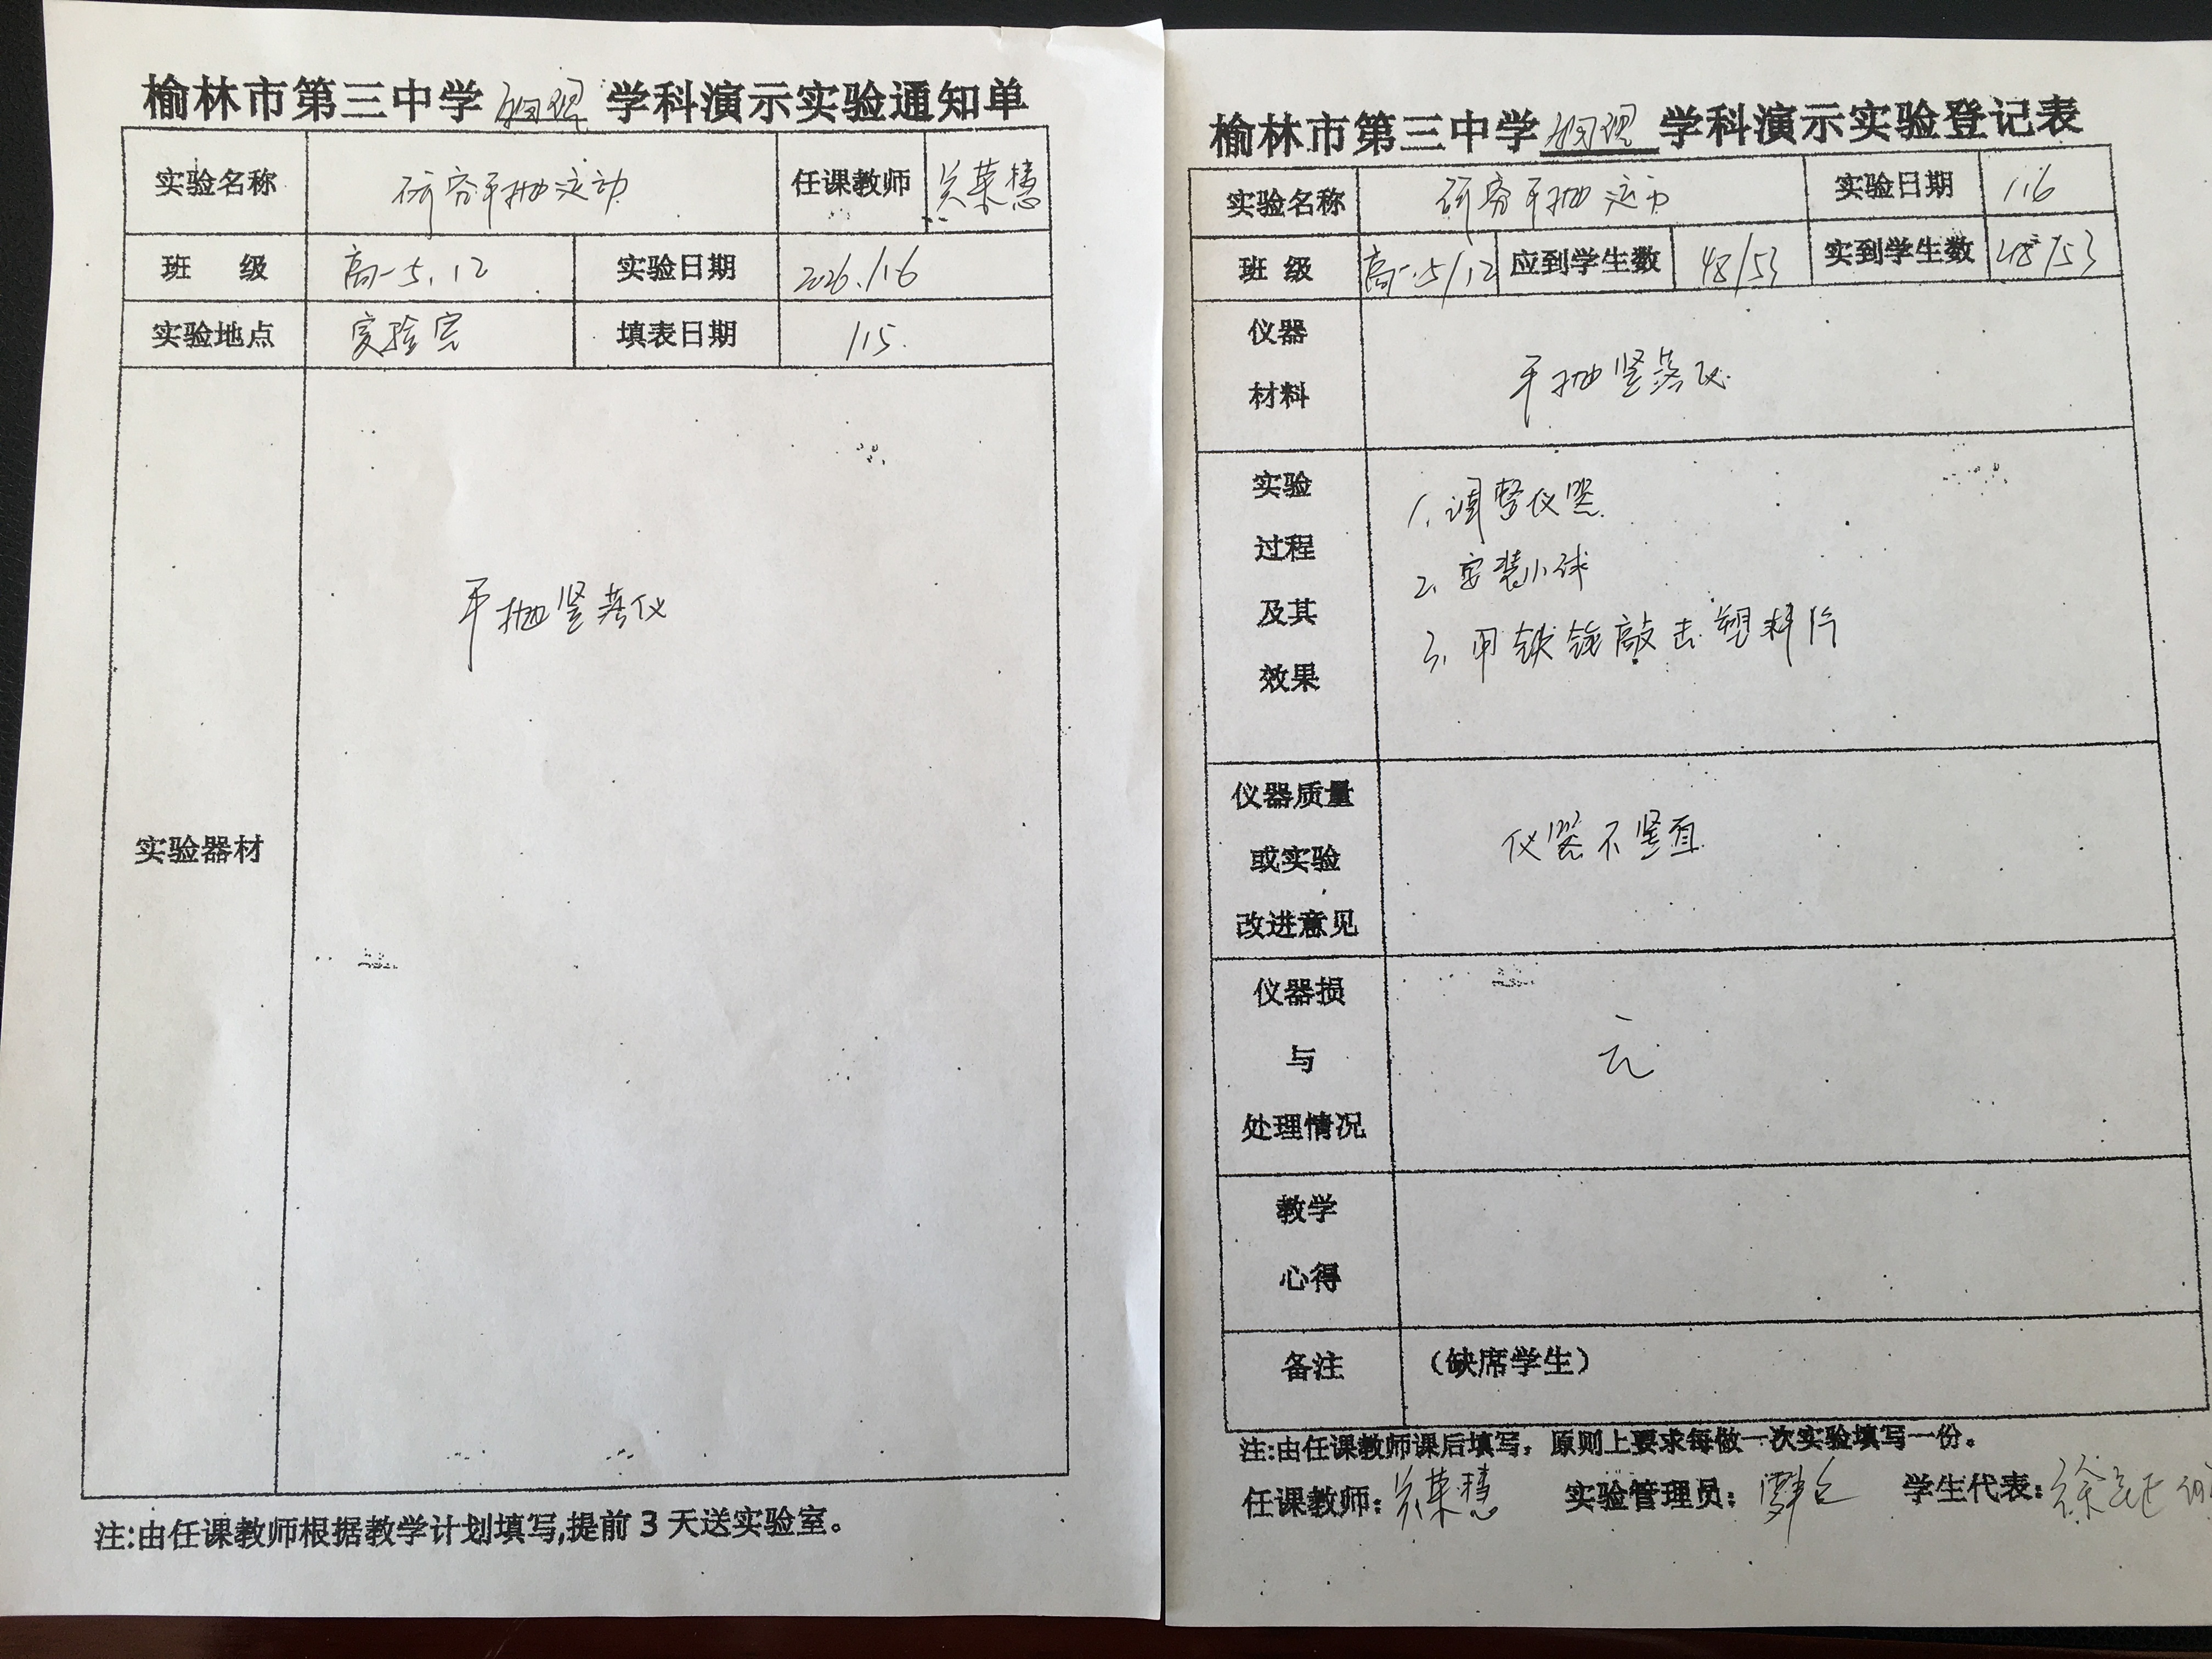 榆林市第三中学 物理 学科演示实验通知单
实验名称 研究平抛运动 任课教师 荣慧
班 级 高一5、12 实验日期 2026.1.16
实验地点 实验室 填表日期 1.15.
实验器材 平抛竖落仪
注:由任课教师根据教学计划填写,提前3天送实验室。
榆林市第三中学 物理 学科演示实验登记表
实验名称 研究平抛运动 实验日期 1.16
班 级 高一.5/12 应到学生数 48/53 实到学生数 48/53
仪器
材料
平抛竖落仪
实验
过程
及其
效果
1.调整仪器
2.安装小球
3.用铁锤敲击塑料片
仪器质量
或实验
改进意见
仪器不竖直
仪器损
与
处理情况
无
教学
心得
备注 （缺席学生）
注:由任课教师课后填写，原则上要求每做一次实验填写一份。
任课教师: 荣慧 实验管理员: 学生代表: 徐